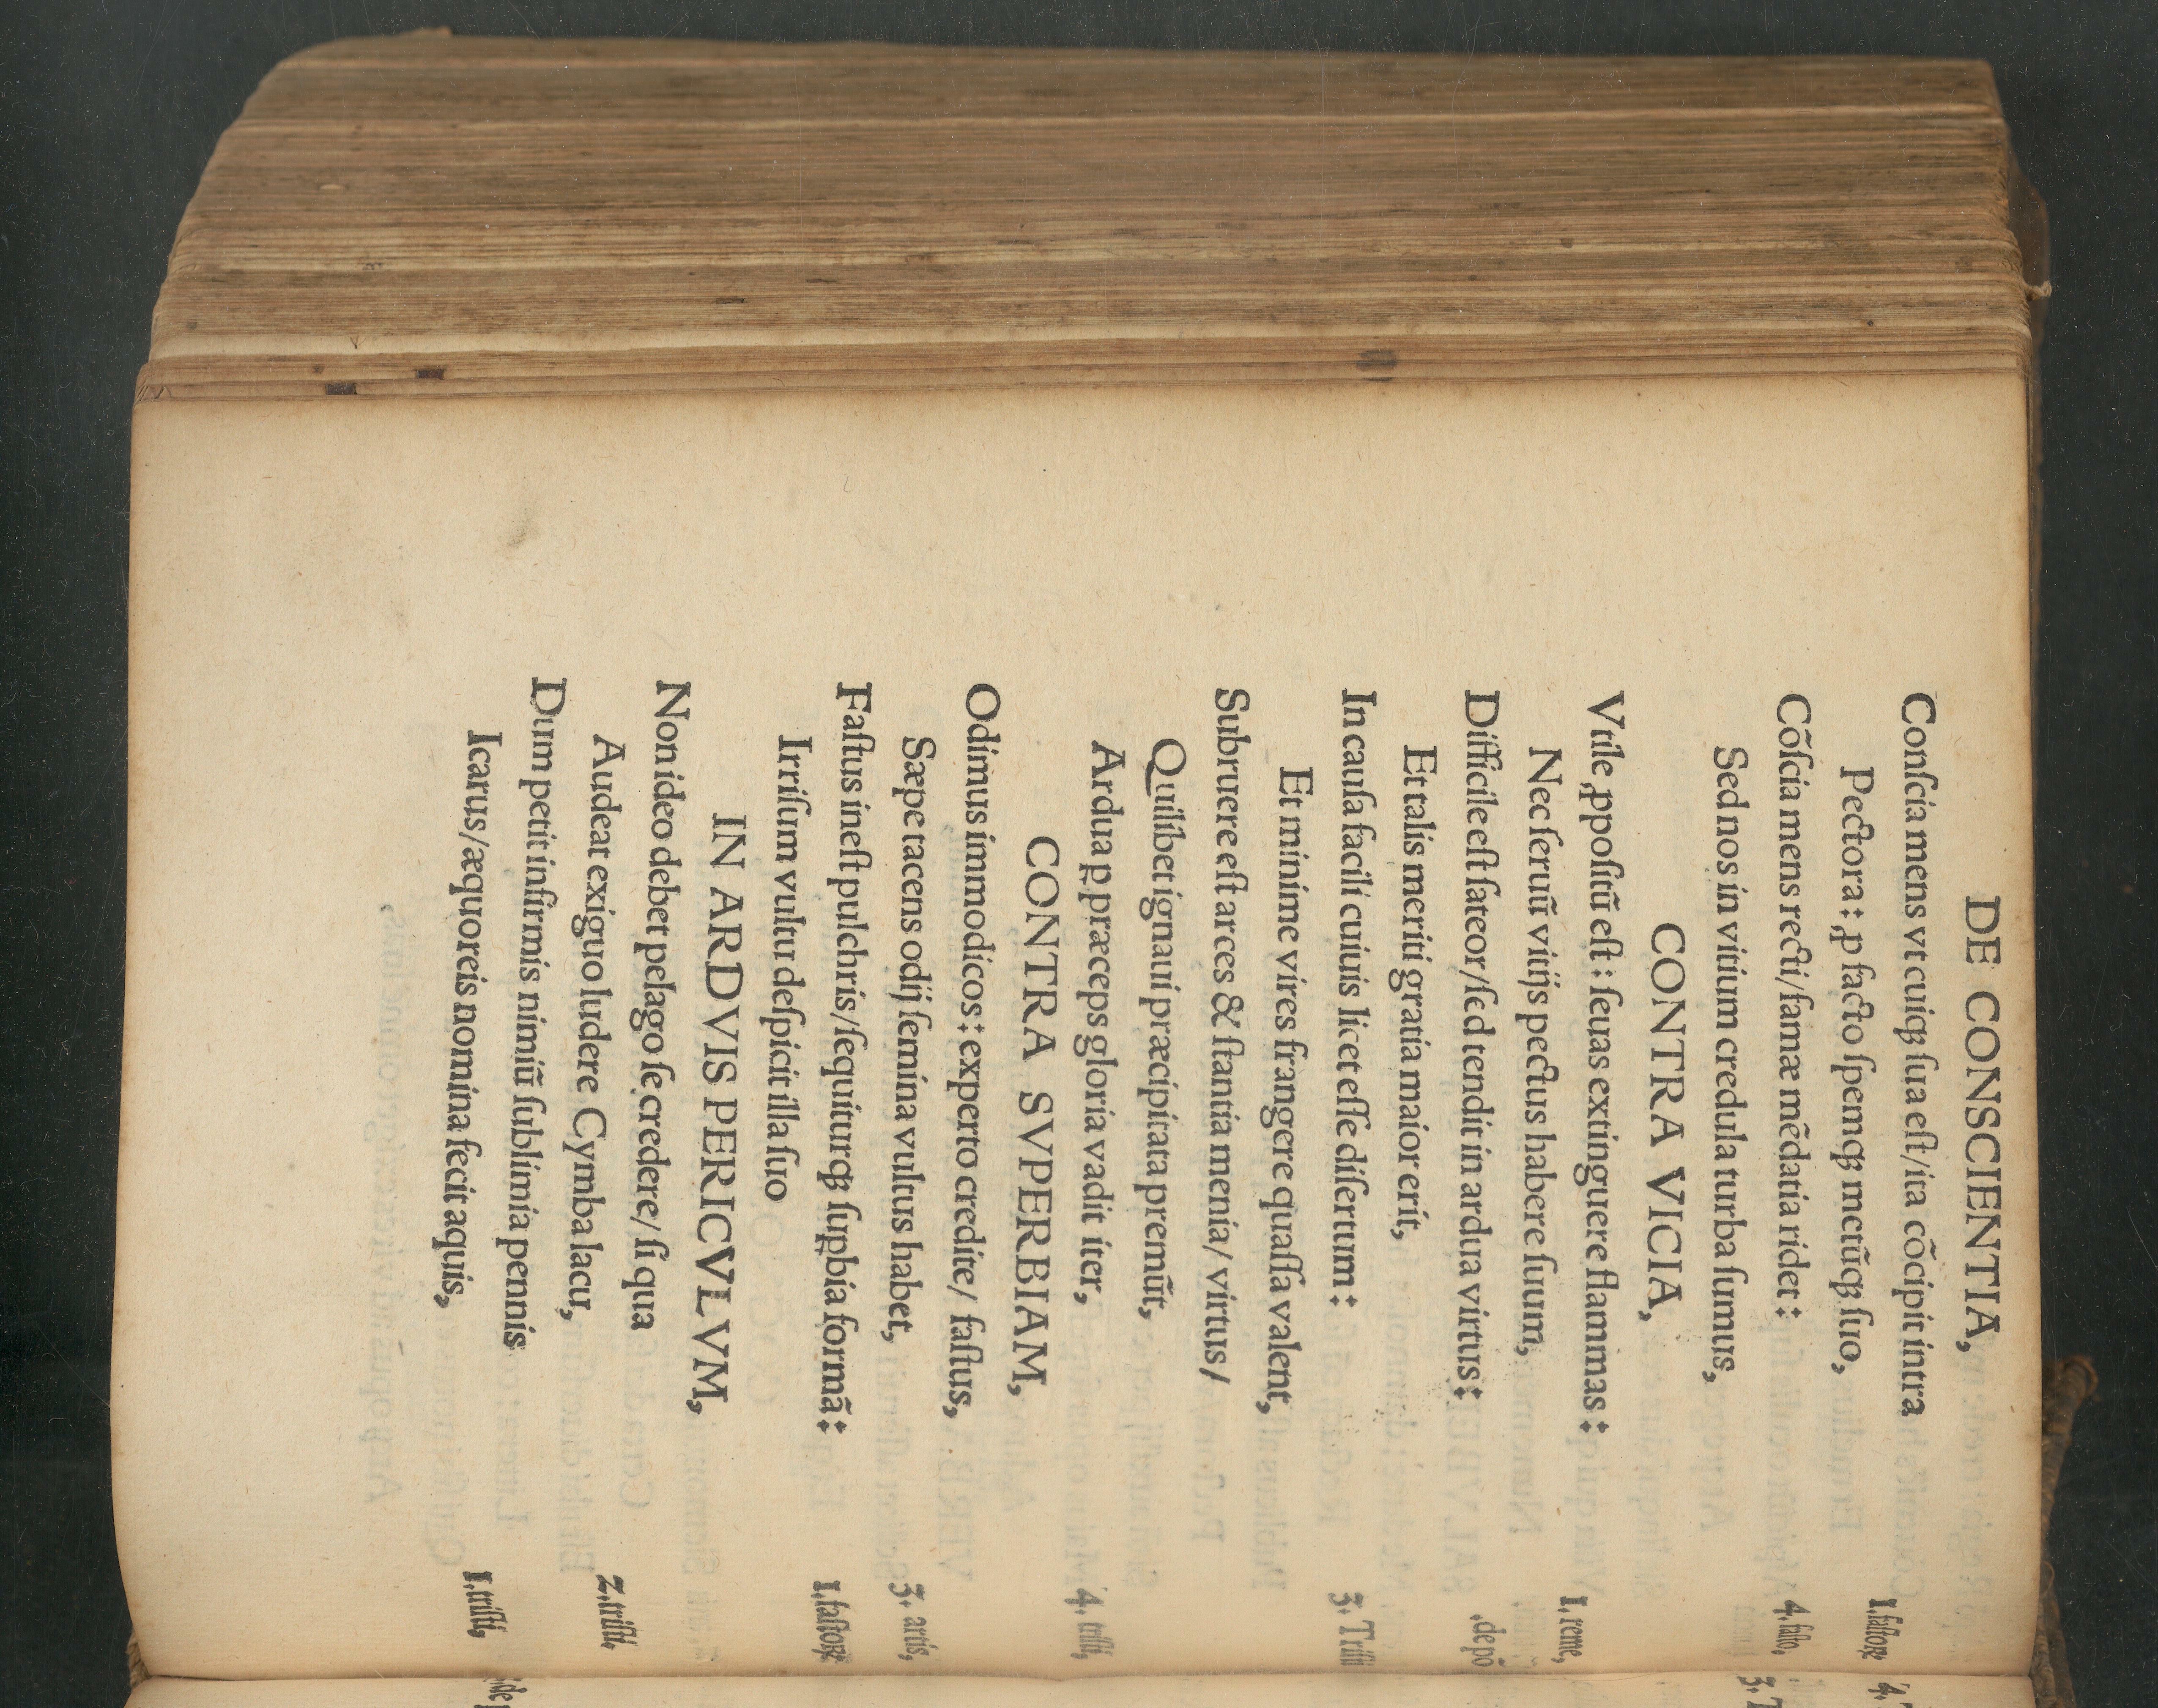 DE CONSCIENTIA,
Conſcia mens vt cuiqꝫ ſua eſt/ita cõcipit intra 1.faſtoꝝ
Pectora: ꝓ facto ſpemqꝫ metũqꝫ ſuo,
Cõſcia mens recti/famæ mẽdatia ridet: 4.faſto,
Sed nos in vitium credula turba ſumus,
CONTRA VICIA,
Vtile ꝓpoſitũ eſt: ſeuas extinguere flammas: 1.reme,
Nec ſeruũ vitijs pectus habere ſuum,
Difficile eſt fateor/ſed tendit in ardua virtus: .depõ
Et talis meriti gratia maior erit,
In cauſa facili cuiuis licet eſſe diſertum: 3. Triſti
Et minime vires frangere quaſſa valent,
Subruere eſt arces & ſtantia menia/ virtus/
Quilibet ignaui præcipitata premũt,
Ardua ꝑ præceps gloria vadit iter, 4. triſti,
CONTRA SVPERBIAM,
Odimus immodicos: experto credite/ faſtus,
Sæpe tacens odij ſemina vultus habet, 3. artis,
Faſtus ineſt pulchris/ſequiturqꝫ ſuꝑbia formã: 1.faſtoꝝ
Irriſum vultur deſpicit illa ſuo
IN ARDVIS PERICVLVM,
Non ideo debet pelago ſe credere/ ſi qua
Audeat exiguo ludere Cymba lacu, 2.triſti,
Dum petit infirmis nimiũ ſublimia pennis
Icarus/æquoreis nomina fecit aquis, 1.triſti,